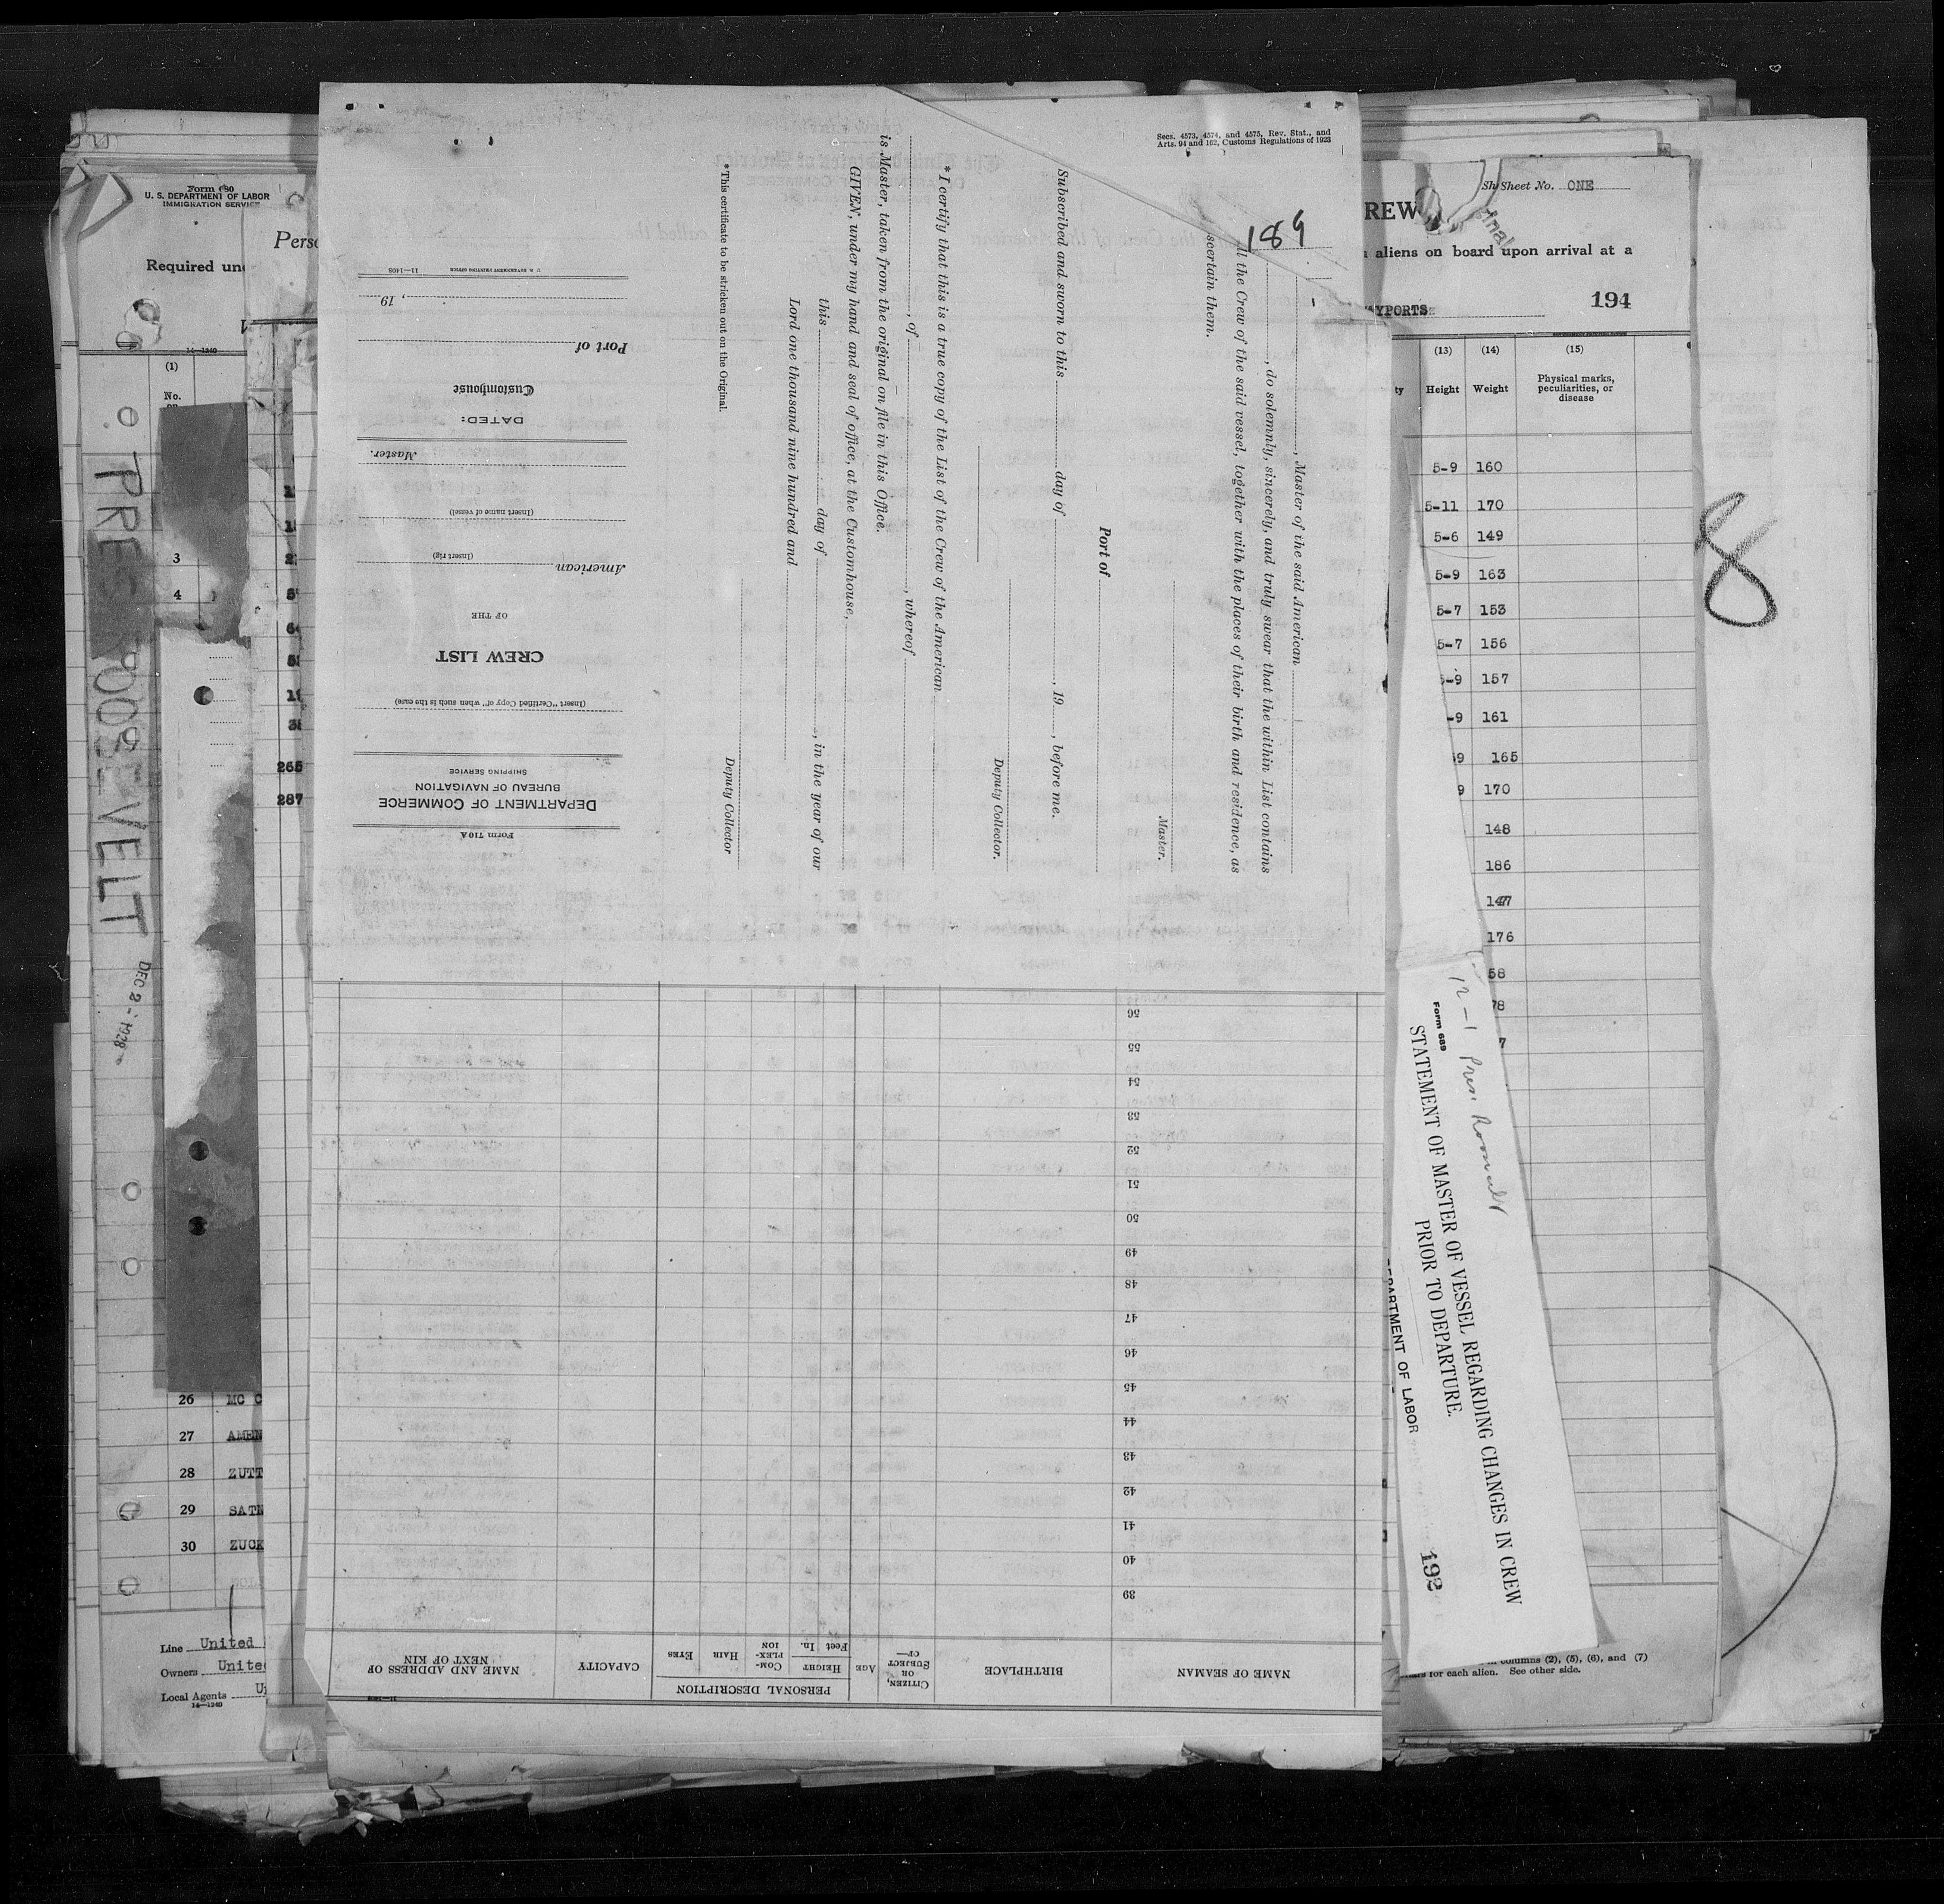 Form 680
U. S. DEPARTMENT OF LABOR
IMMIGRATION SERVICE
Required
14—1240
(1)
No.
3
4
26 MC C
27 AMEN
28 ZUTT
29 SATN
30 ZUCK
Line United
Owners Unite
Local Agents
14—1240
PRES ROOSEVELT
DEC 2 - 1928
265
287
Secs. 4573, 4574, and 4575, Rev. Stat., and
Arts. 94 and 162, Customs Regulations of 1923
189
, Master of the said American
, do solemnly, sincerely, and truly swear that the within List contains
all the Crew of the said vessel, together with the places of their birth and residence, as
ascertain them.
Master.
Port of
Subscribed and sworn to this day of , 19 , before me.
Deputy Collector.
* I certify that this is a true copy of the List of the Crew of the American
, of , whereof
is Master, taken from the original on file in this Office.
GIVEN, under my hand and seal of office, at the Customhouse,
this day of , in the year of our
Lord one thousand nine hundred and
Deputy Collector
* This certificate to be stricken out on the Original.
Form 710A
DEPARTMENT OF COMMERCE
BUREAU OF NAVIGATION
SHIPPING SERVICE
(Insert "Certified Copy of" when such is the case)
CREW LIST
OF THE
American
(Insert rig)
(Insert name of vessel)
Master.
DATED:
Customhouse
Port of
, 19
U. S. GOVERNMENT PRINTING OFFICE 11—1408
NAME OF SEAMAN
BIRTHPLACE
CITIZEN, OR SUBJECT OF—
AGE
PERSONAL DESCRIPTION
HEIGHT
Feet In.
COM-PLEX-ION
HAIR
EYES
CAPACITY
NAME AND ADDRESS OF NEXT OF KIN
39
40
41
42
43
44
45
46
47
48
49
50
51
52
53
54
55
56
Sheet No. ONE
REW
aliens on board upon arrival at a
194
(13) (14) (15)
Height Weight Physical marks, peculiarities, or disease
5-9 160
5-11 170
5-6 149
5-9 163
5-7 153
5-7 156
5-9 157
-9 161
165
9 170
148
186
147
176
58
78
7
columns (2), (5), (6), and (7)
for each alien. See other side.
8
12-1 Pres. Roosevelt
Form 689
STATEMENT OF MASTER OF VESSEL REGARDING CHANGES IN CREW
PRIOR TO DEPARTURE.
DEPARTMENT OF LABOR
192